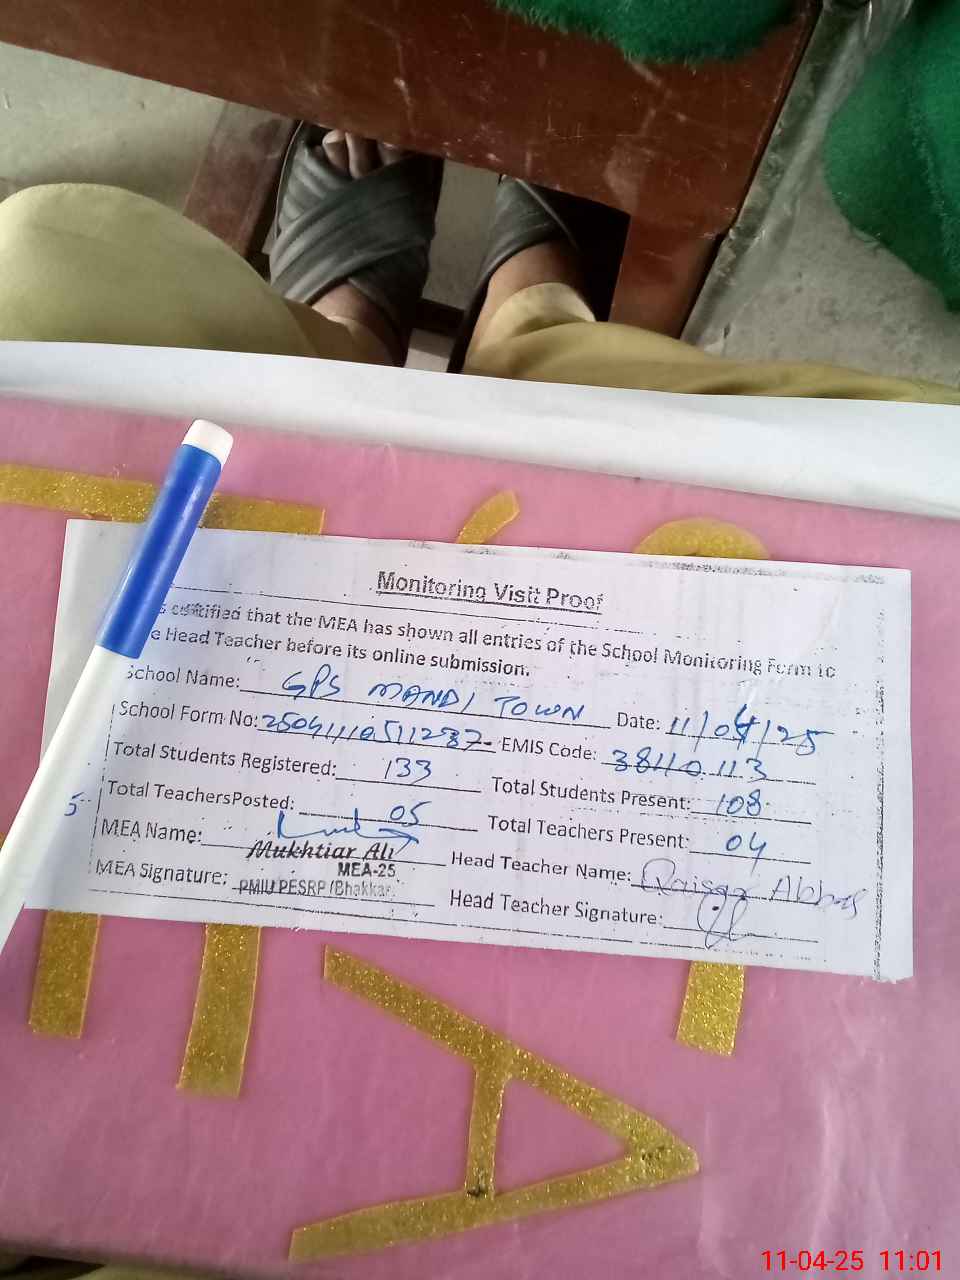 Monitoring Visit Proof
certified that the MEA has shown all entries of the School Monitoring Form to
e Head Teacher before its online submission.
School Name: GPS MANDI TOWN Date: 11/04/25
School Form No: EMIS Code: 38110113
Total Students Registered: 133 Total Students Present: 108
Total TeachersPosted: 05 Total Teachers Present: 04
MEA Name: Mukhtiar Ali Head Teacher Name: Qaisar Abbas
MEA-25
MEA Signature: PMIU PESRP (Bhakkar Head Teacher Signature:
A
11-04-25 11:01